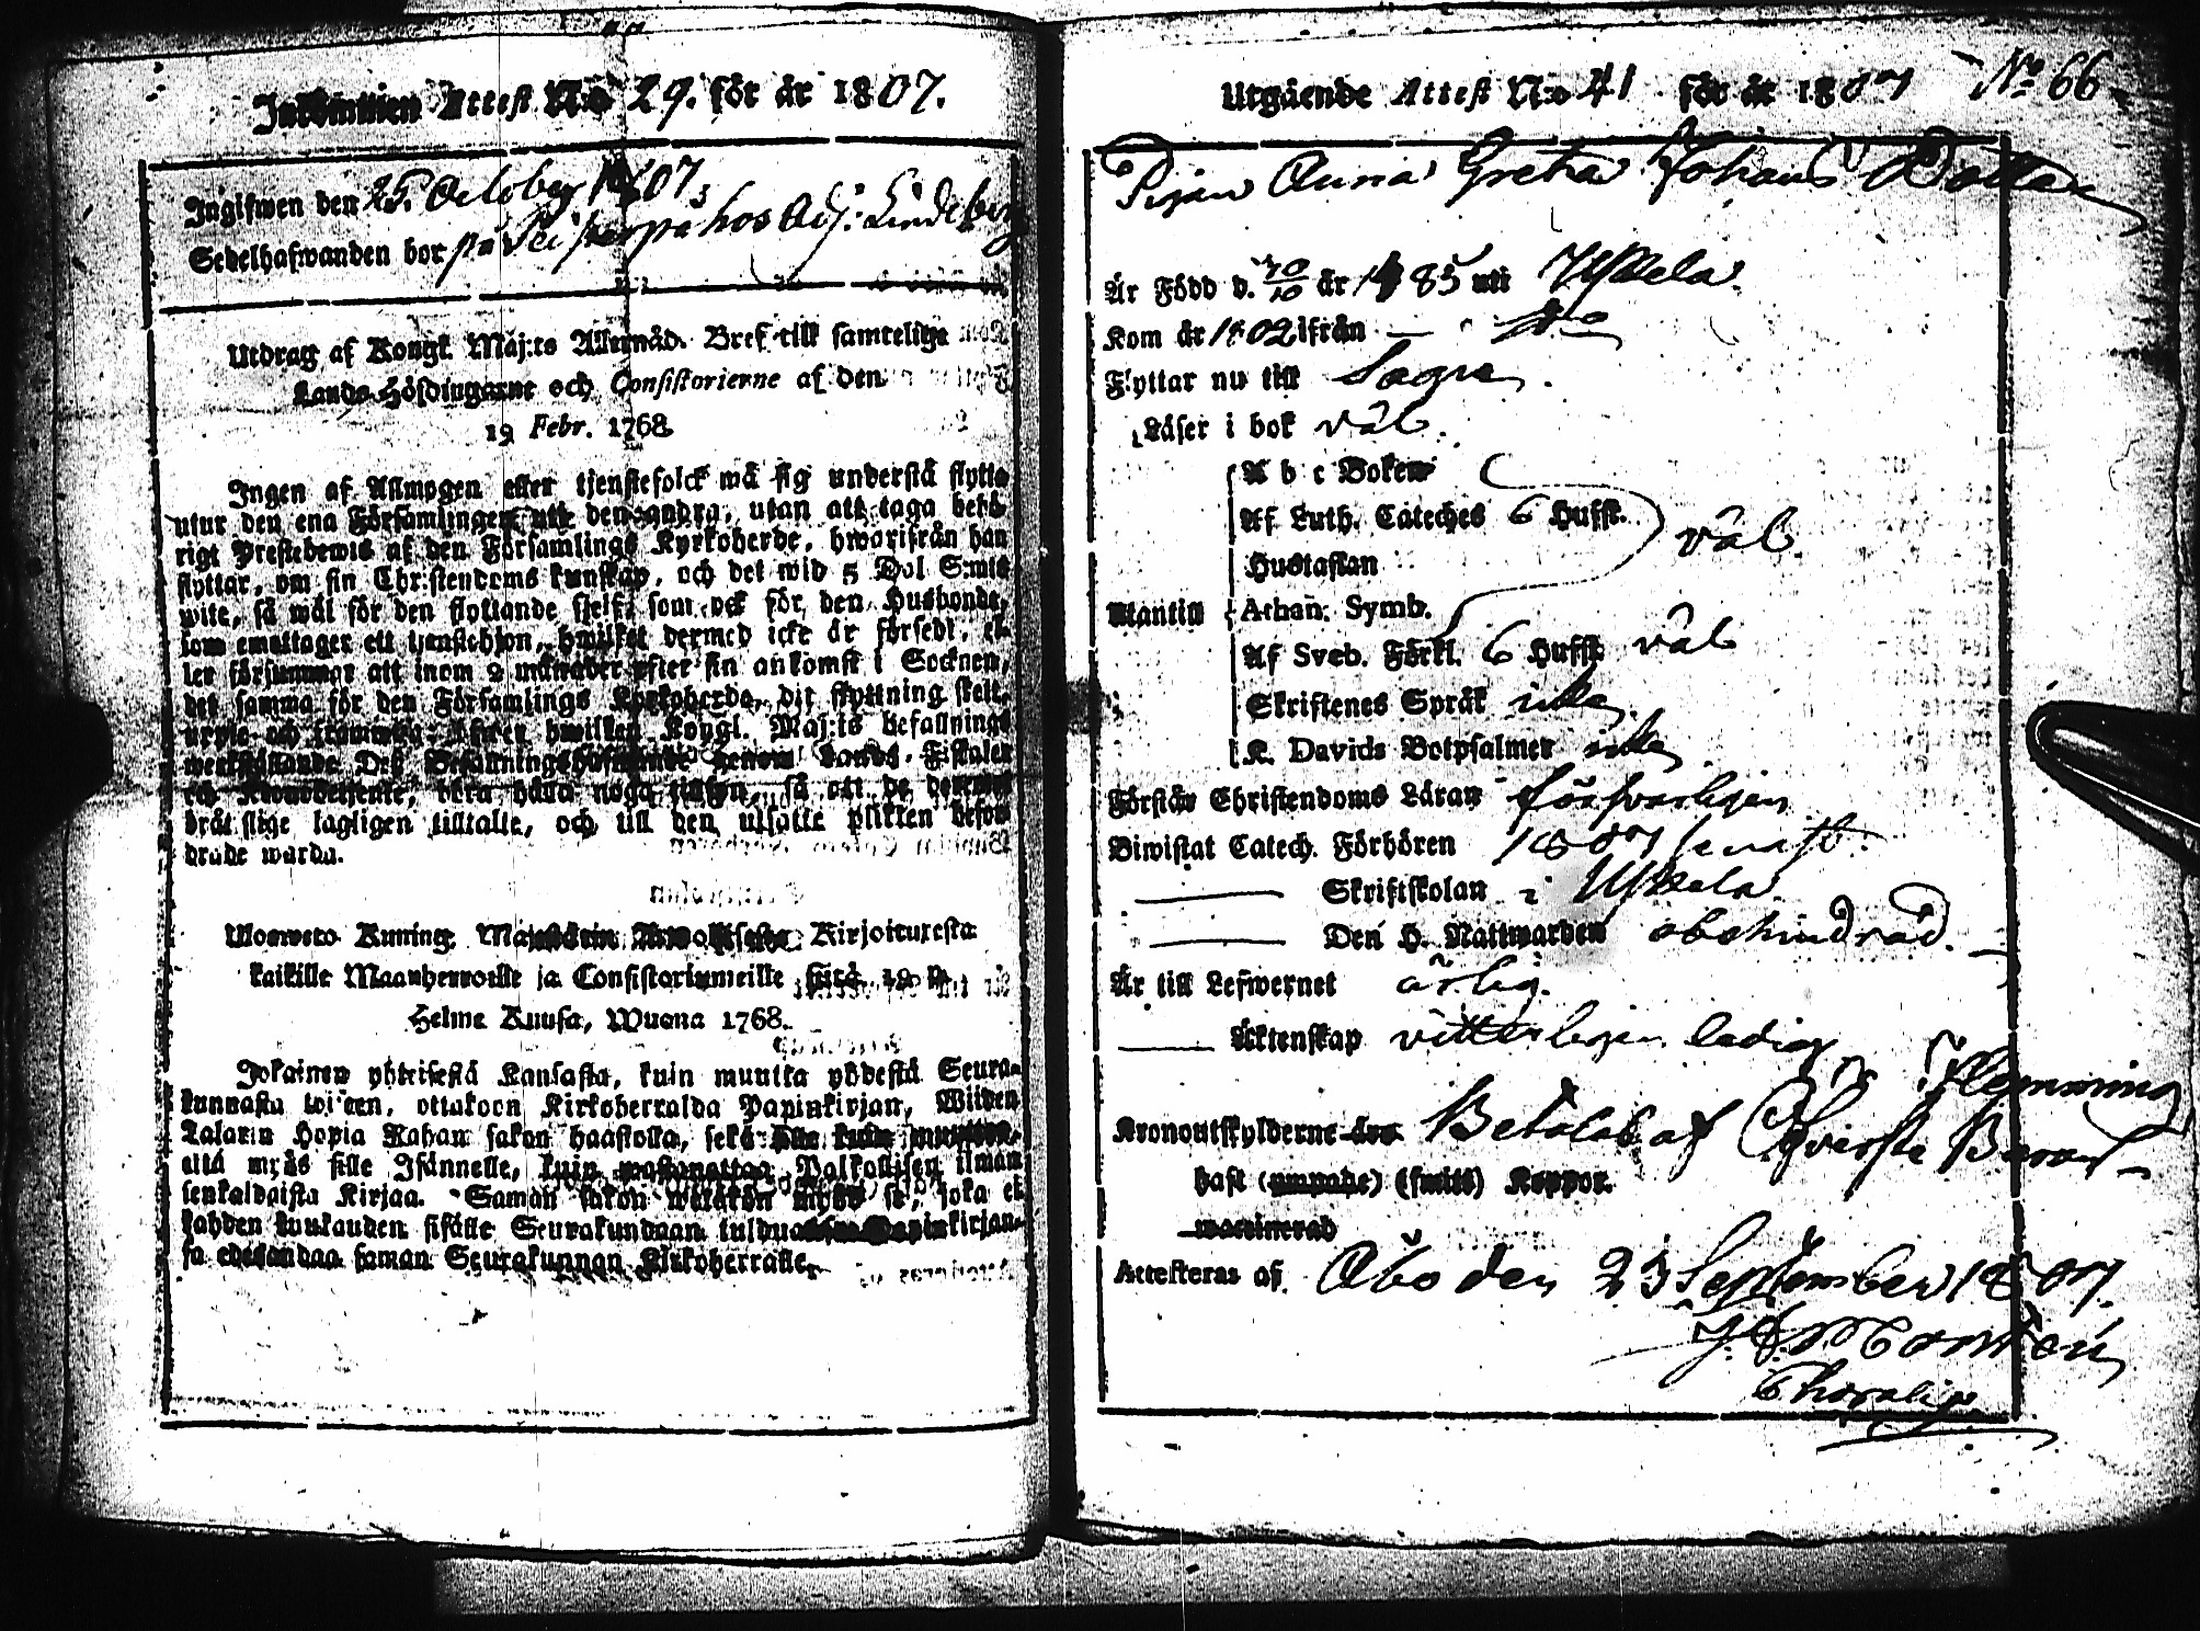 Inkommen Attest N:o 29. för år 1807.
Ingifwen den 25. October 1807,
Sedelhafwanden bor på hos Adj: Lindeberg
Utdrag af Kongl. Maj:ts Allernåd. Bref till samtelige
Lands-Höfdingarne och Consistorierne af den
19 Febr. 1768.
Ingen af Allmogen eller tjenstefolck må sig understå flytta
utur den ena Församlingen uti den andra, utan att taga behö-
rigt Prestebewis af den Församlings Kyrkoherde, hworifrån han
flyttar, om sin Christendoms kunskap, och det wid 5 Dal S:mts
wite, så wäl för den flyttande sjelf, som ock för den Husbonde,
som emottager ett tjenstehjon, hwilket dermed icke är försedt, el-
ler försummar att inom 2 månader efter sin ankomst i Socknen,
det samma för den Församlings Kyrkoherde, dit flyttning skett,
hwilken Kongl. Maj:ts Befallnings
Lands-Fiskaler
och Kronobetjente, böra hålla noga så att de
bråtslige lagligen tilltalte, och till den utsatte plikten befor-
drade warda.
Ulosweto Kuning. Majestätin Kirjoituxesta
kaikille Maanherroille ja Consistoriumeille siitä 19 p.
Helme Kuusa, Wuona 1768.
Jokainen yhteisestä Kansasta, kuin muutta yhdestä Seura-
kunnasta toiseen, ottakoon Kirkoherralda Papinkirjan, Wiiden
Talarin Hopia Rahan sakon haastolla, sekä
että myös sille Isännelle, kuin wastaanottaa Palkollisen ilman
senkaldaista Kirjaa. Saman sakon wetäkön myös se, joka ei
kahden kuukauden sisälle Seurakundaan tulduansa Papinkirjan-
sa edesandaa saman Seurakunnan Kirkoherralle.
Utgående Attest N:o 41 för år 1807 No 66
Pigan Anna Greta Johans Dotter
Är Född d. 20/10 år 1785 uti Uskela
Kom år 1802 ifrån — do
Flyttar nu till Sagu.
Läser i bok väl.
A b c Boken
Af Luth. Cateches 6 Hufst. väl.
Hustaflan
Utantill Athan. Symb.
Af Sveb. Förkl. 6 Hufst. väl
Skriftenes Språk icke
K. Davids Botpsalmer icke
Förstår Christendoms Läran försvarligen
Biwistat Catech. Förhören 1807 senast.
— Skriftskolan i Uskela
— Den H. Nattwarden obehindrad.
Är till Lefwernet ärlig.
— Äktenskap vitterligen ledig
Flemming
Kronoutskylderne Betalas af Öfverste Baron
haft (ympade) (smitt) Koppor.
waccinerad
Attesteras af Åbo den 23 September 1807.